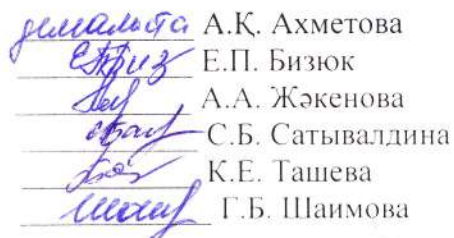 демалыста А.Қ. Ахметова
Е.П. Бизюк
А.А. Жәкенова
С.Б. Сатывалдина
К.Е. Ташева
Г.Б. Шаимова